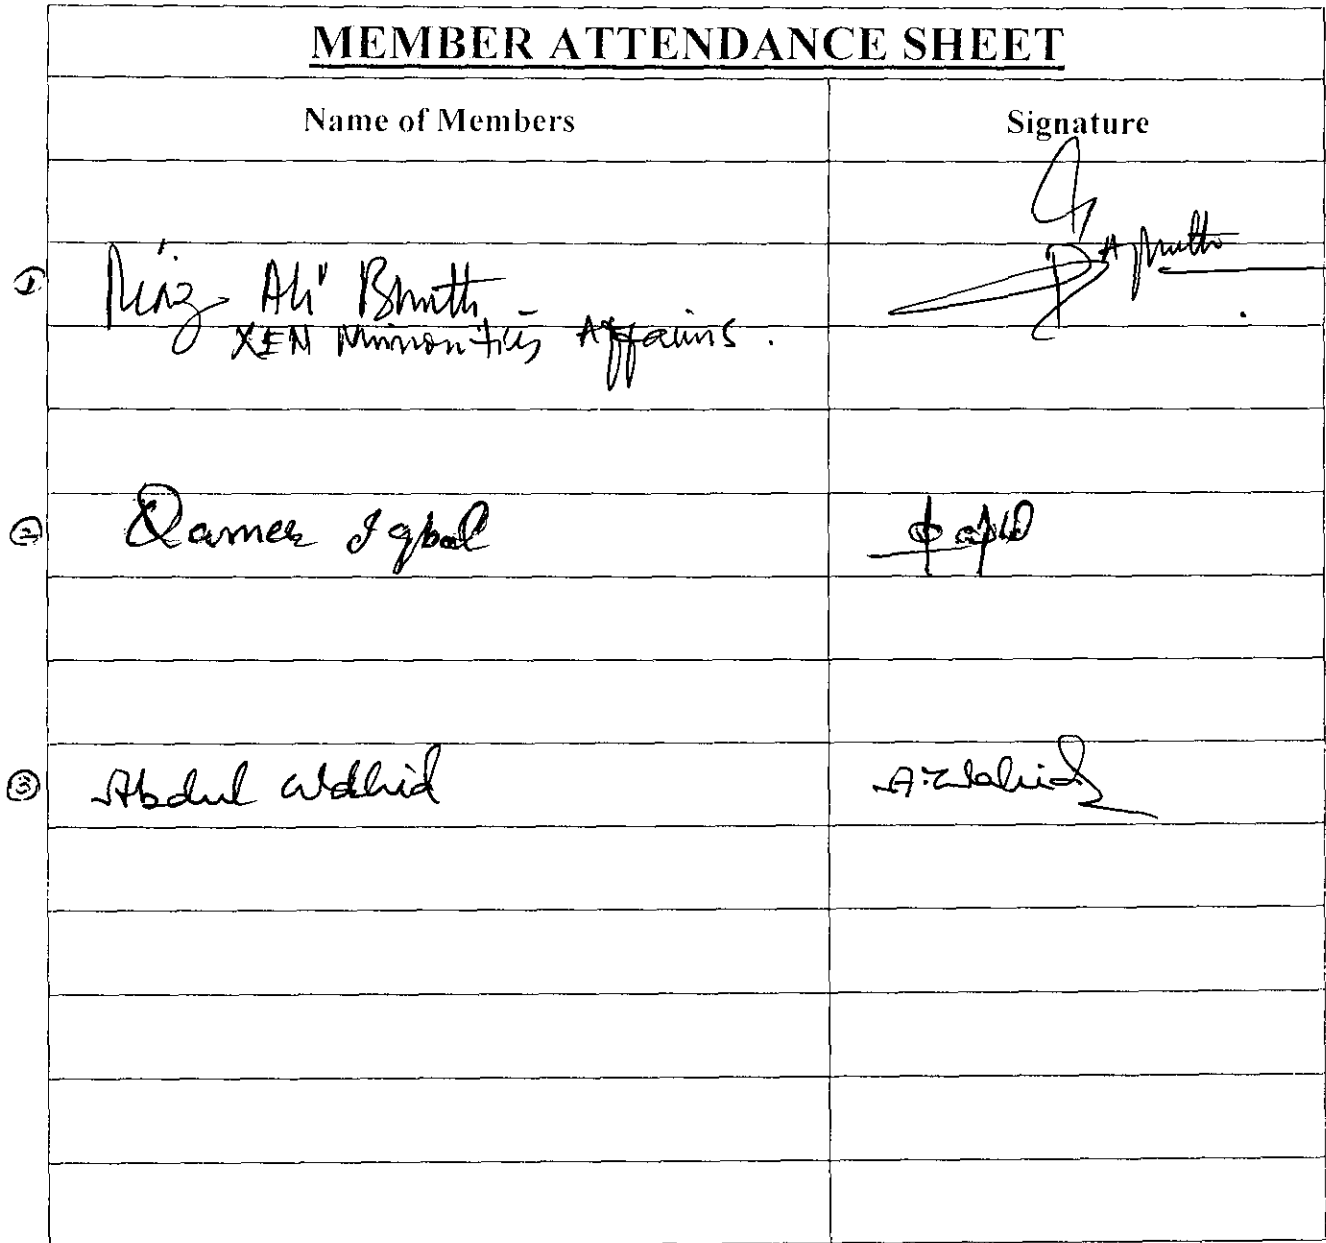 MEMBER ATTENDANCE SHEET
Name of Members Signature
① Niaz Ali Bhutto
XEN Minorities Affairs.
② Qamer Iqbal
③ Abdul Wahid A. Wahid